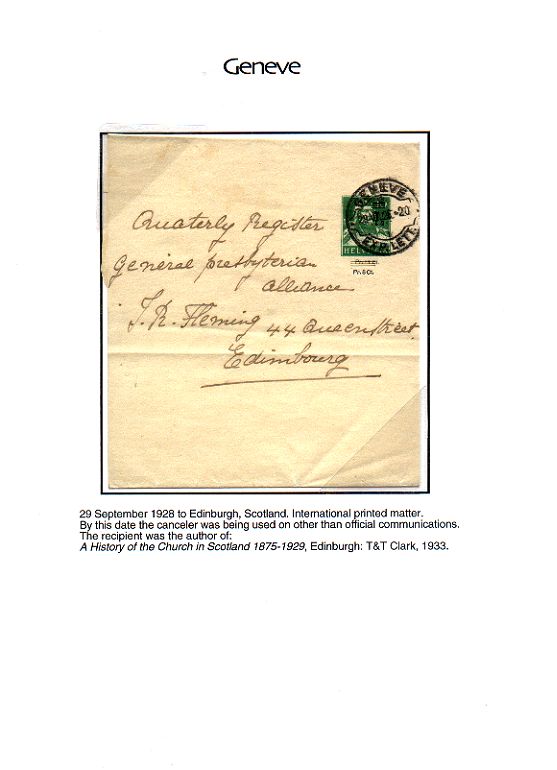 Geneve
GENEVE
EXP. LETT.
HELV
Quaterly Register
of
General presbyterian
alliance
J. R. Fleming 44 Queen Street
Edimbourg
29 September 1928 to Edinburgh, Scotland. International printed matter.
By this date the canceler was being used on other than official communications.
The recipient was the author of:
A History of the Church in Scotland 1875-1929, Edinburgh: T&T Clark, 1933.